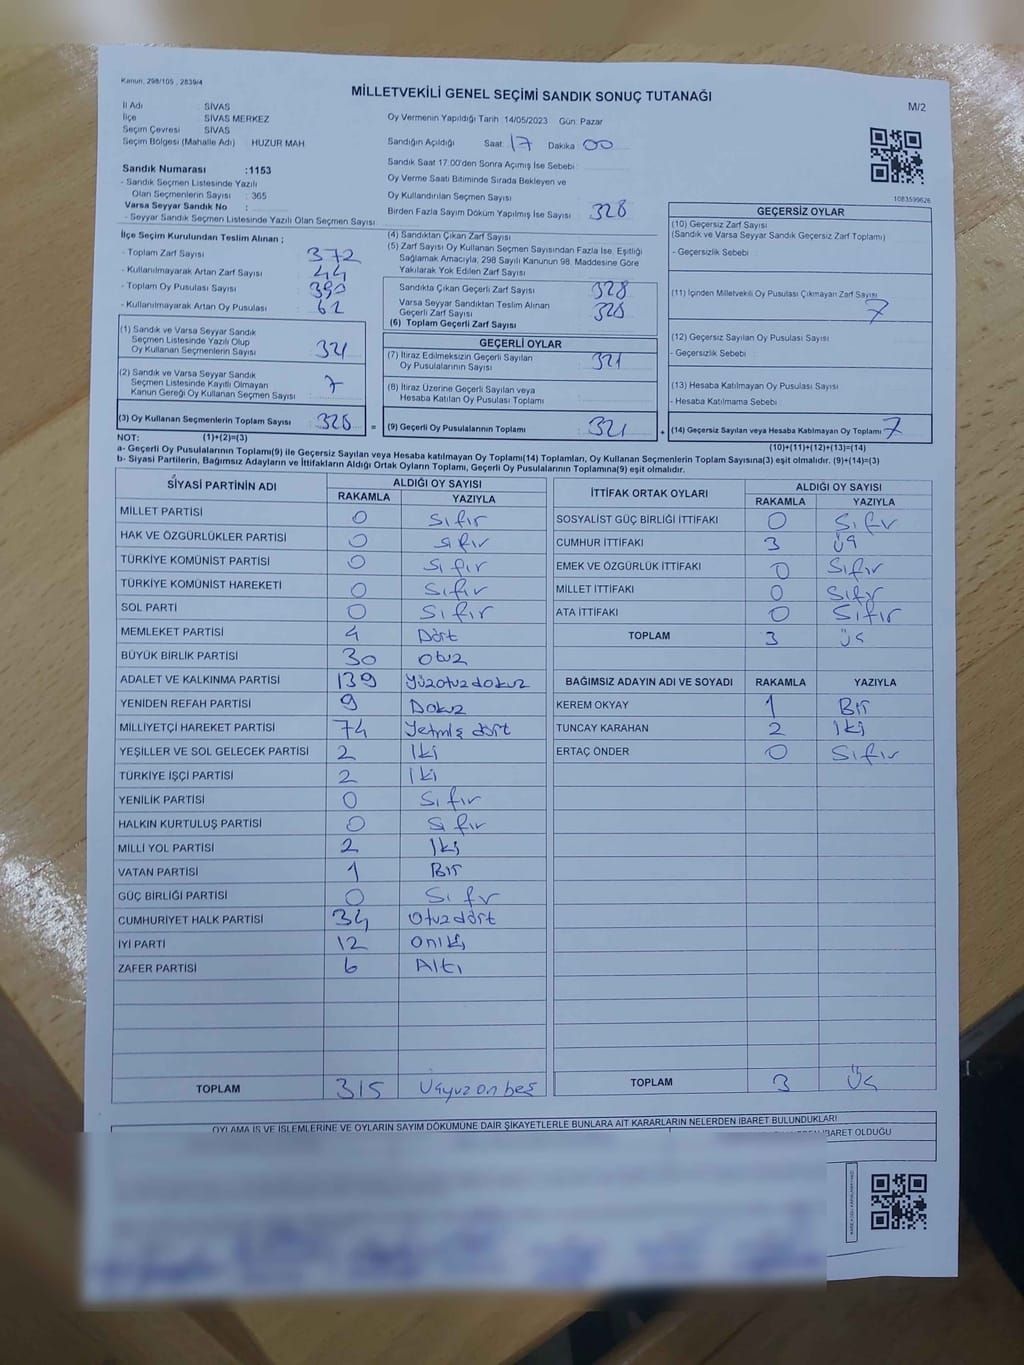 Kanun, 298/105 , 2839/4
MİLLETVEKİLİ GENEL SEÇİMİ SANDIK SONUÇ TUTANAĞI
M/2
İl Adı : SİVAS
İlçe : SİVAS MERKEZ
Seçim Çevresi : SİVAS
Seçim Bölgesi (Mahalle Adı) HUZUR MAH
Oy Vermenin Yapıldığı Tarih 14/05/2023 Gün: Pazar
Sandığın Açıldığı Saat 17 Dakika 00
Sandık Saat 17.00'den Sonra Açımış İse Sebebi
Oy Verme Saati Bitiminde Sırada Bekleyen ve
Oy Kullandırılan Seçmen Sayısı
Birden Fazla Sayım Döküm Yapılmış İse Sayısı 328
1083599626
Sandık Numarası :1153
- Sandık Seçmen Listesinde Yazılı
Olan Seçmenlerin Sayısı : 365
Varsa Seyyar Sandık No :
- Seyyar Sandık Seçmen Listesinde Yazılı Olan Seçmen Sayısı
İlçe Seçim Kurulundan Teslim Alınan ;
- Toplam Zarf Sayısı 372
- Kullanılmayarak Artan Zarf Sayısı 44
- Toplam Oy Pusulası Sayısı 390
- Kullanılmayarak Artan Oy Pusulası 62
(1) Sandık ve Varsa Seyyar Sandık
Seçmen Listesinde Yazılı Olup
Oy Kullanan Seçmenlerin Sayısı 321
(2) Sandık ve Varsa Seyyar Sandık
Seçmen Listesinde Kayıtlı Olmayan
Kanun Gereği Oy Kullanan Seçmen Sayısı 7
(3) Oy Kullanan Seçmenlerin Toplam Sayısı 328 =
(4) Sandıktan Çıkan Zarf Sayısı
(5) Zarf Sayısı Oy Kullanan Seçmen Sayısından Fazla İse, Eşitliği
Sağlamak Amacıyla, 298 Sayılı Kanunun 98. Maddesine Göre
Yakılarak Yok Edilen Zarf Sayısı
Sandıkta Çıkan Geçerli Zarf Sayısı 328
Varsa Seyyar Sandıktan Teslim Alınan
Geçerli Zarf Sayısı 328
(6) Toplam Geçerli Zarf Sayısı
GEÇERLİ OYLAR
(7) İtiraz Edilmeksizin Geçerli Sayılan
Oy Pusulalarının Sayısı 321
(8) İtiraz Üzerine Geçerli Sayılan veya
Hesaba Katılan Oy Pusulası Toplamı
(9) Geçerli Oy Pusulalarının Toplamı 321 +
GEÇERSİZ OYLAR
(10) Geçersiz Zarf Sayısı
(Sandık ve Varsa Seyyar Sandık Geçersiz Zarf Toplamı)
- Geçersizlik Sebebi
(11) İçinden Milletvekili Oy Pusulası Çıkmayan Zarf Sayısı 7
(12) Geçersiz Sayılan Oy Pusulası Sayısı
- Geçersizlik Sebebi
(13) Hesaba Katılmayan Oy Pusulası Sayısı
- Hesaba Katılmama Sebebi
(14) Geçersiz Sayılan veya Hesaba Katılmayan Oy Toplamı 7
NOT: (1)+(2)=(3) (10)+(11)+(12)+(13)=(14)
a- Geçerli Oy Pusulalarının Toplamı(9) ile Geçersiz Sayılan veya Hesaba katılmayan Oy Toplamı(14) Toplamları, Oy Kullanan Seçmenlerin Toplam Sayısına(3) eşit olmalıdır. (9)+(14)=(3)
b- Siyasi Partilerin, Bağımsız Adayların ve İttifakların Aldığı Ortak Oyların Toplamı, Geçerli Oy Pusulalarının Toplamına(9) eşit olmalıdır.
SİYASİ PARTİNİN ADI ALDIĞI OY SAYISI
RAKAMLA YAZIYLA
MİLLET PARTİSİ 0 Sıfır
HAK VE ÖZGÜRLÜKLER PARTİSİ 0 sıfır
TÜRKİYE KOMÜNİST PARTİSİ 0 Sıfır
TÜRKİYE KOMÜNİST HAREKETİ 0 Sıfır
SOL PARTİ 0 Sıfır
MEMLEKET PARTİSİ 4 Dört
BÜYÜK BİRLİK PARTİSİ 30 Otuz
ADALET VE KALKINMA PARTİSİ 139 Yüzotuzdokuz
YENİDEN REFAH PARTİSİ 9 Dokuz
MİLLİYETÇİ HAREKET PARTİSİ 74 Yetmiş dört
YEŞİLLER VE SOL GELECEK PARTİSİ 2 İki
TÜRKİYE İŞÇİ PARTİSİ 2 İki
YENİLİK PARTİSİ 0 Sıfır
HALKIN KURTULUŞ PARTİSİ 0 Sıfır
MİLLİ YOL PARTİSİ 2 İki
VATAN PARTİSİ 1 Bir
GÜÇ BİRLİĞİ PARTİSİ 0 Sıfır
CUMHURİYET HALK PARTİSİ 34 Otuzdört
İYİ PARTİ 12 Oniki
ZAFER PARTİSİ 6 Altı
TOPLAM 315 Üçyüz on beş
İTTİFAK ORTAK OYLARI ALDIĞI OY SAYISI
RAKAMLA YAZIYLA
SOSYALİST GÜÇ BİRLİĞİ İTTİFAKI 0 Sıfır
CUMHUR İTTİFAKI 3 Üç
EMEK VE ÖZGÜRLÜK İTTİFAKI 0 Sıfır
MİLLET İTTİFAKI 0 Sıfır
ATA İTTİFAKI 0 Sıfır
TOPLAM 3 Üç
BAĞIMSIZ ADAYIN ADI VE SOYADI RAKAMLA YAZIYLA
KEREM OKYAY 1 Bir
TUNCAY KARAHAN 2 İki
ERTAÇ ÖNDER 0 Sıfır
TOPLAM 3 Üç
OYLAMA İŞ VE İŞLEMLERİNE VE OYLARIN SAYIM DÖKÜMÜNE DAİR ŞİKAYETLERLE BUNLARA AİT KARARLARIN NELERDEN İBARET BULUNDUKLARI
İBARET OLDUĞU